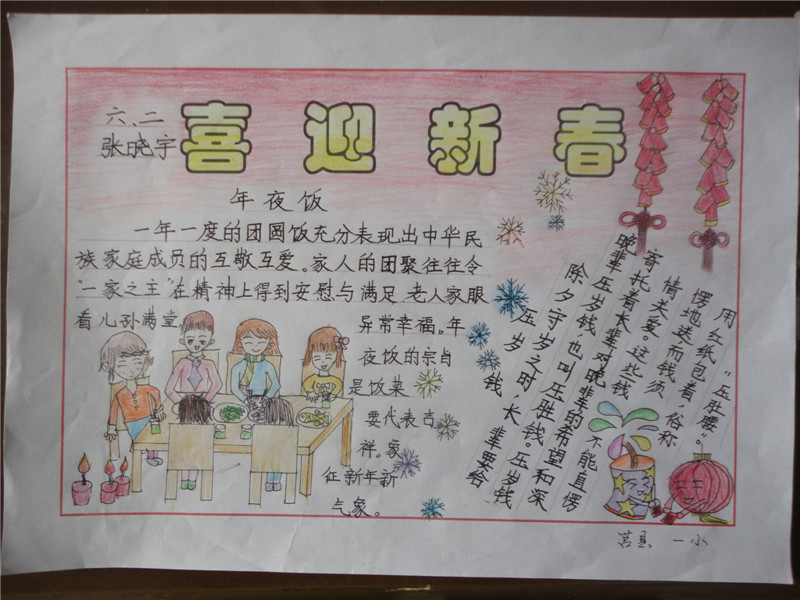 喜迎新春
六、二
张晓宇
年夜饭
一年一度的团圆饭充分表现出中华民
族家庭成员的互敬互爱。家人的团聚往往令
"一家之主"在精神上得到安慰与满足,老人家眼
看儿孙满堂,
异常幸福。年
夜饭的宗旨
是饭菜
要代表吉
祥。象
征新年新
气象。
压岁钱
除夕守岁之时,长辈要给
晚辈压岁钱也叫压胜钱。压岁钱
寄托着长辈对晚辈的希望和深
情关爱。这些钱不能直愣
愣地递而钱须
用红纸包着,俗称
"压肚腰"。
莒县 一小